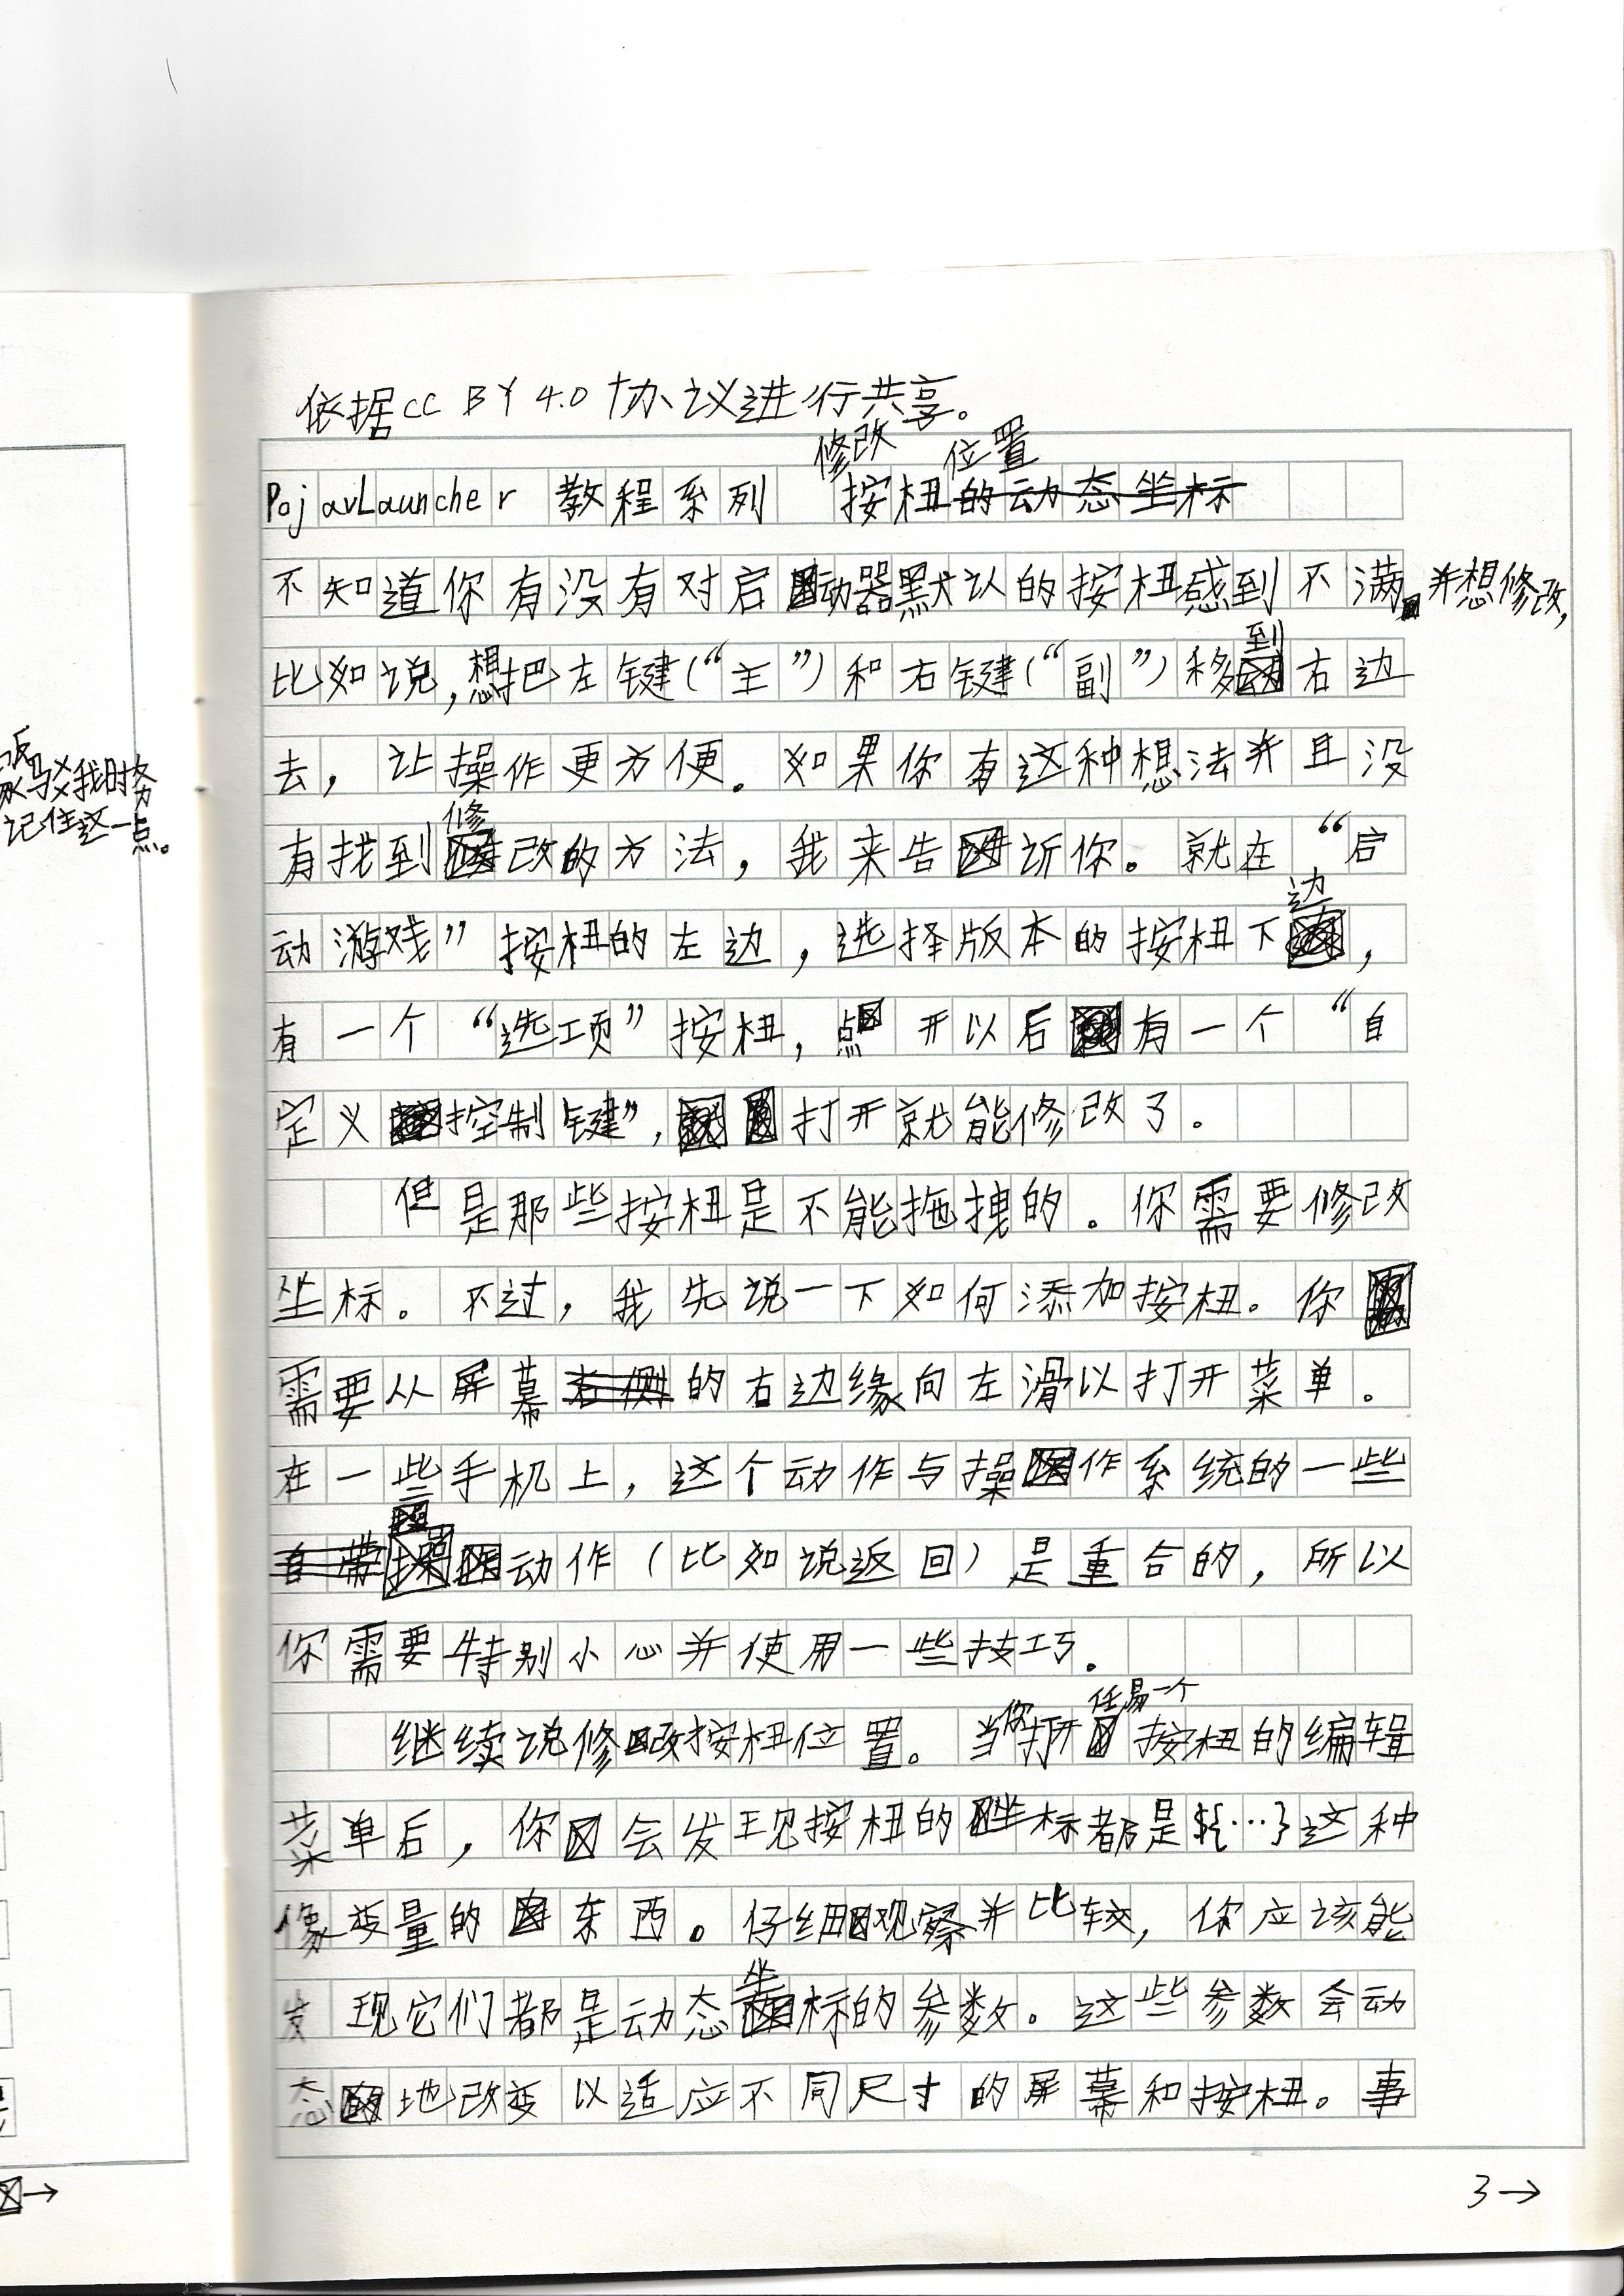 依据CC BY 4.0协议进行共享。
PojavLauncher 教程系列 修改按钮位置的动态坐标
不知道你有没有对启动器默认的按钮感到不满。并想修改,
比如说,想把左键(“主”)和右键(“副”)移到右边
去,让操作更方便。如果你有这种想法并且没
有找到修改的方法,我来告诉你。就在“启
动游戏”按钮的左边,选择版本的按钮下边,
有一个“选项”按钮,点开以后有一个“自
定义控制键”,打开就能修改了。
但是那些按钮是不能拖拽的。你需要修改
坐标。不过,我先说一下如何添加按钮。你
需要从屏幕右侧的右边缘向左滑以打开菜单。
在一些手机上,这个动作与操作系统的一些
自带动作(比如说返回)是重合的,所以
你需要特别小心并使用一些技巧。
继续说修改按钮位置。当你打开任易一个按钮的编辑
菜单后,你会发现按钮的坐标都是${…}这种
像变量的东西。仔细观察并比较,你应该能
发现它们都是动态坐标的参数。这些参数会动
态地改变以适应不同尺寸的屏幕和按钮。事
3→
我时务
记住这一点。
→